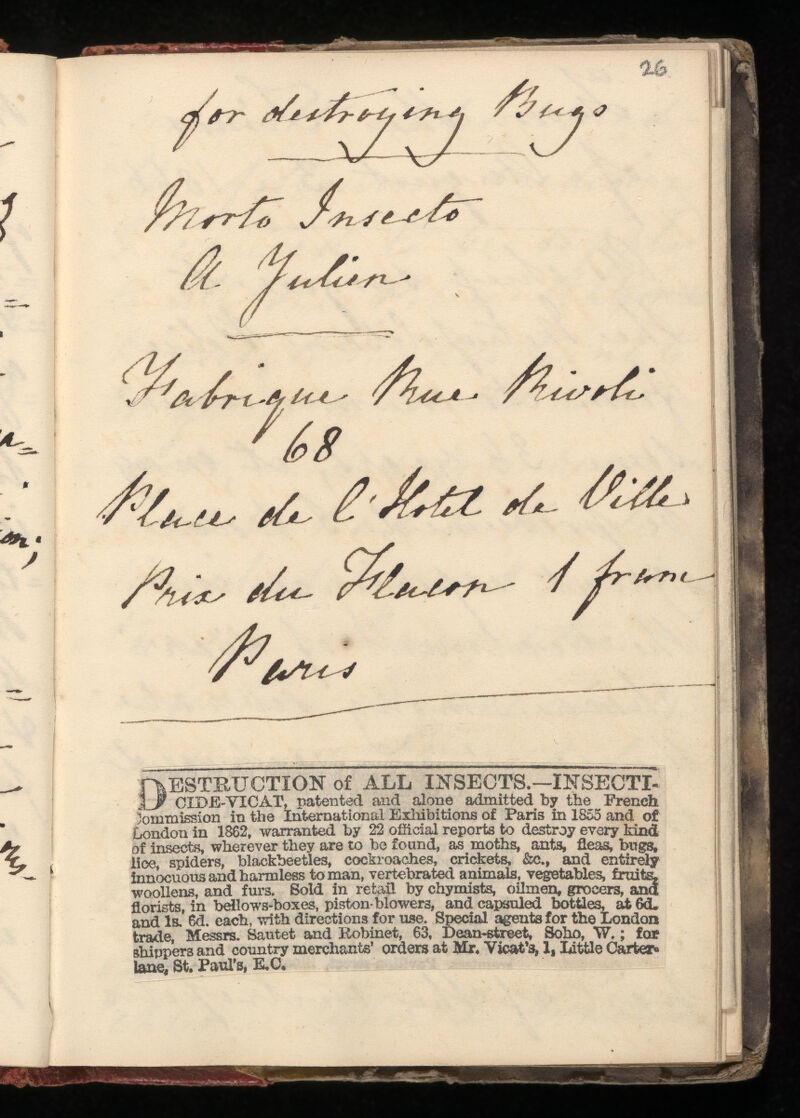 26
for destroying Bugs
Morto Insecto
A Julien
Fabrique Rue Rivoli
68
Place de l'Hotel de Ville
Prix du Flacon 1 franc
Paris
DESTRUCTION of ALL INSECTS.—INSECTI-
CIDE-VICAT, patented and alone admitted by the French
Commission in the International Exhibitions of Paris in 1855 and of
London in 1862, warranted by 22 official reports to destroy every kind
of insects, wherever they are to be found, as moths, ants, fleas, bugs,
lice, spiders, blackbeetles, cockroaches, crickets, &c., and entirely
innocuous and harmless to man, vertebrated animals, vegetables, fruits,
woollens, and furs. Sold in retail by chymists, oilmen, grocers, and
florists, in bellows-boxes, piston-blowers, and capsuled bottles, at 6d.
and 1s. 6d. each, with directions for use. Special agents for the London
trade, Messrs. Sautet and Robinet, 63, Dean-street, Soho, W.; for
shippers and country merchants' orders at Mr. Vicat's, 1, Little Carter-
lane, St. Paul's, E.C.